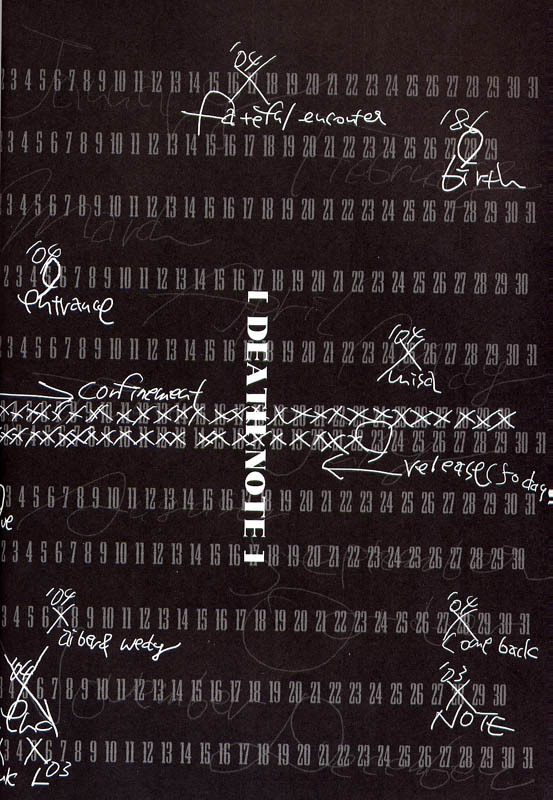 January
'04
2 3 4 5 6 7 8 9 10 11 12 13 14 15 16 17 18 19 20 21 22 23 24 25 26 27 28 29 30 31
fateful encouter
'86
2 3 4 5 6 7 8 9 10 11 12 13 14 15 16 17 18 19 20 21 22 23 24 25 26 27 28 29
February
birth
March
2 3 4 5 6 7 8 9 10 11 12 13 14 15 16 17 18 19 20 21 22 23 24 25 26 27 28 29 30 31
'04
2 3 4 5 6 7 8 9 10 11 12 13 14 15 16 17 18 19 20 21 22 23 24 25 26 27 28 29 30
entrance
April
[ DEATH NOTE ]
'04
May
2 3 4 5 6 7 8 9 10 11 12 13 14 15 16 17 18 19 20 21 22 23 24 25 26 27 28 29 30 31
misa
confinement
2 3 4 5 6 7 8 9 10 11 12 13 14 15 16 17 18 19 20 21 22 23 24 25 26 27 28 29 30
2 3 4 5 6 7 8 9 10 11 12 13 14 15 16 17 18 19 20 21 22 23 24 25 26 27 28 29 30 31
release 50days
2 3 4 5 6 7 8 9 10 11 12 13 14 15 16 17 18 19 20 21 22 23 24 25 26 27 28 29 30 31
August
September
2 3 4 5 6 7 8 9 10 11 12 13 14 15 16 17 18 19 20 21 22 23 24 25 26 27 28 29 30
'04
'04
2 3 4 5 6 7 8 9 10 11 12 13 14 15 16 17 18 19 20 21 22 23 24 25 26 27 28 29 30 31
aiber & wedy
come back
'04
'03
2 3 4 5 6 7 8 9 10 11 12 13 14 15 16 17 18 19 20 21 22 23 24 25 26 27 28 29 30
November
NOTE
2 3 4 5 6 7 8 9 10 11 12 13 14 15 16 17 18 19 20 21 22 23 24 25 26 27 28 29 30 31
L '03
December